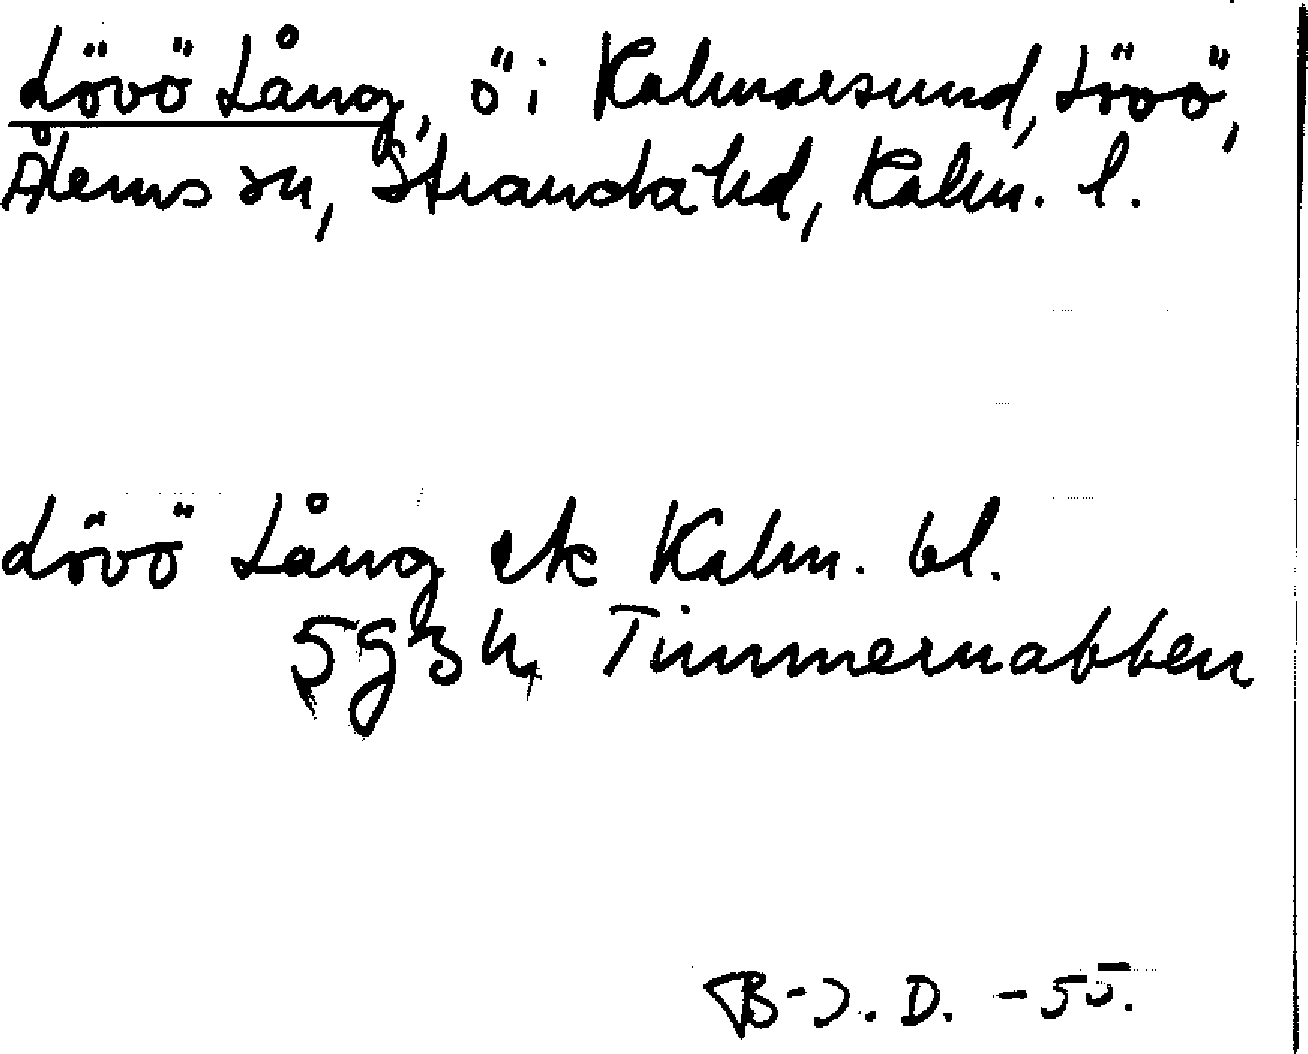 Lövö Lång, ö i Kalmarsund, Lövö,
Ålems sn, Stranda hd, Kalm. l.
Lövö Lång ek Kalm. bl.
5g3h, Timmernabben
B-J. D. -55.